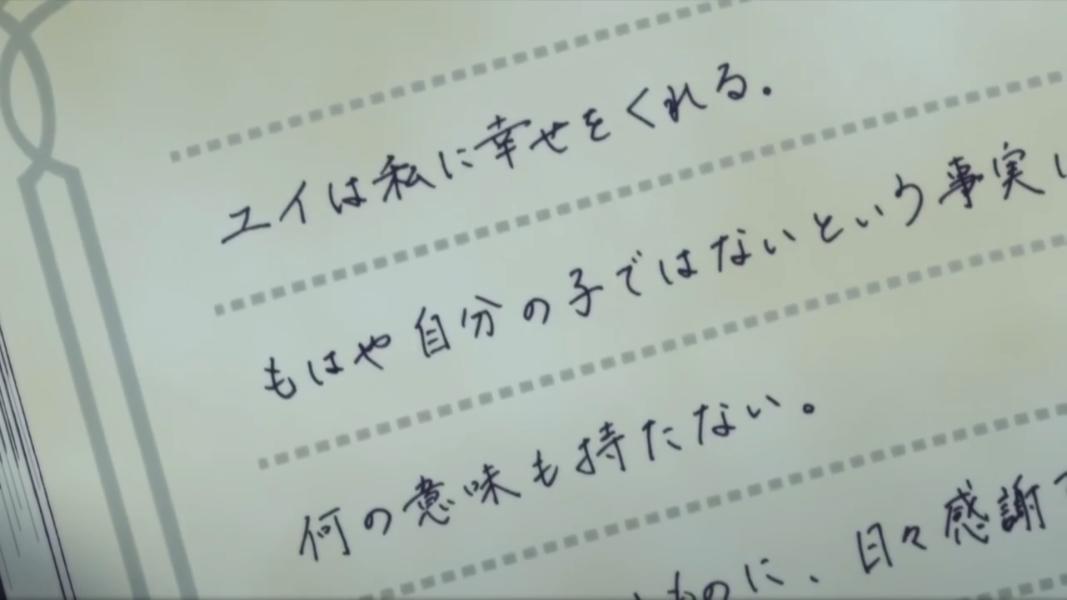 ユイは私に幸せをくれる.
もはや自分の子ではないという事実
何の意味も持たない。
ものに、日々感謝